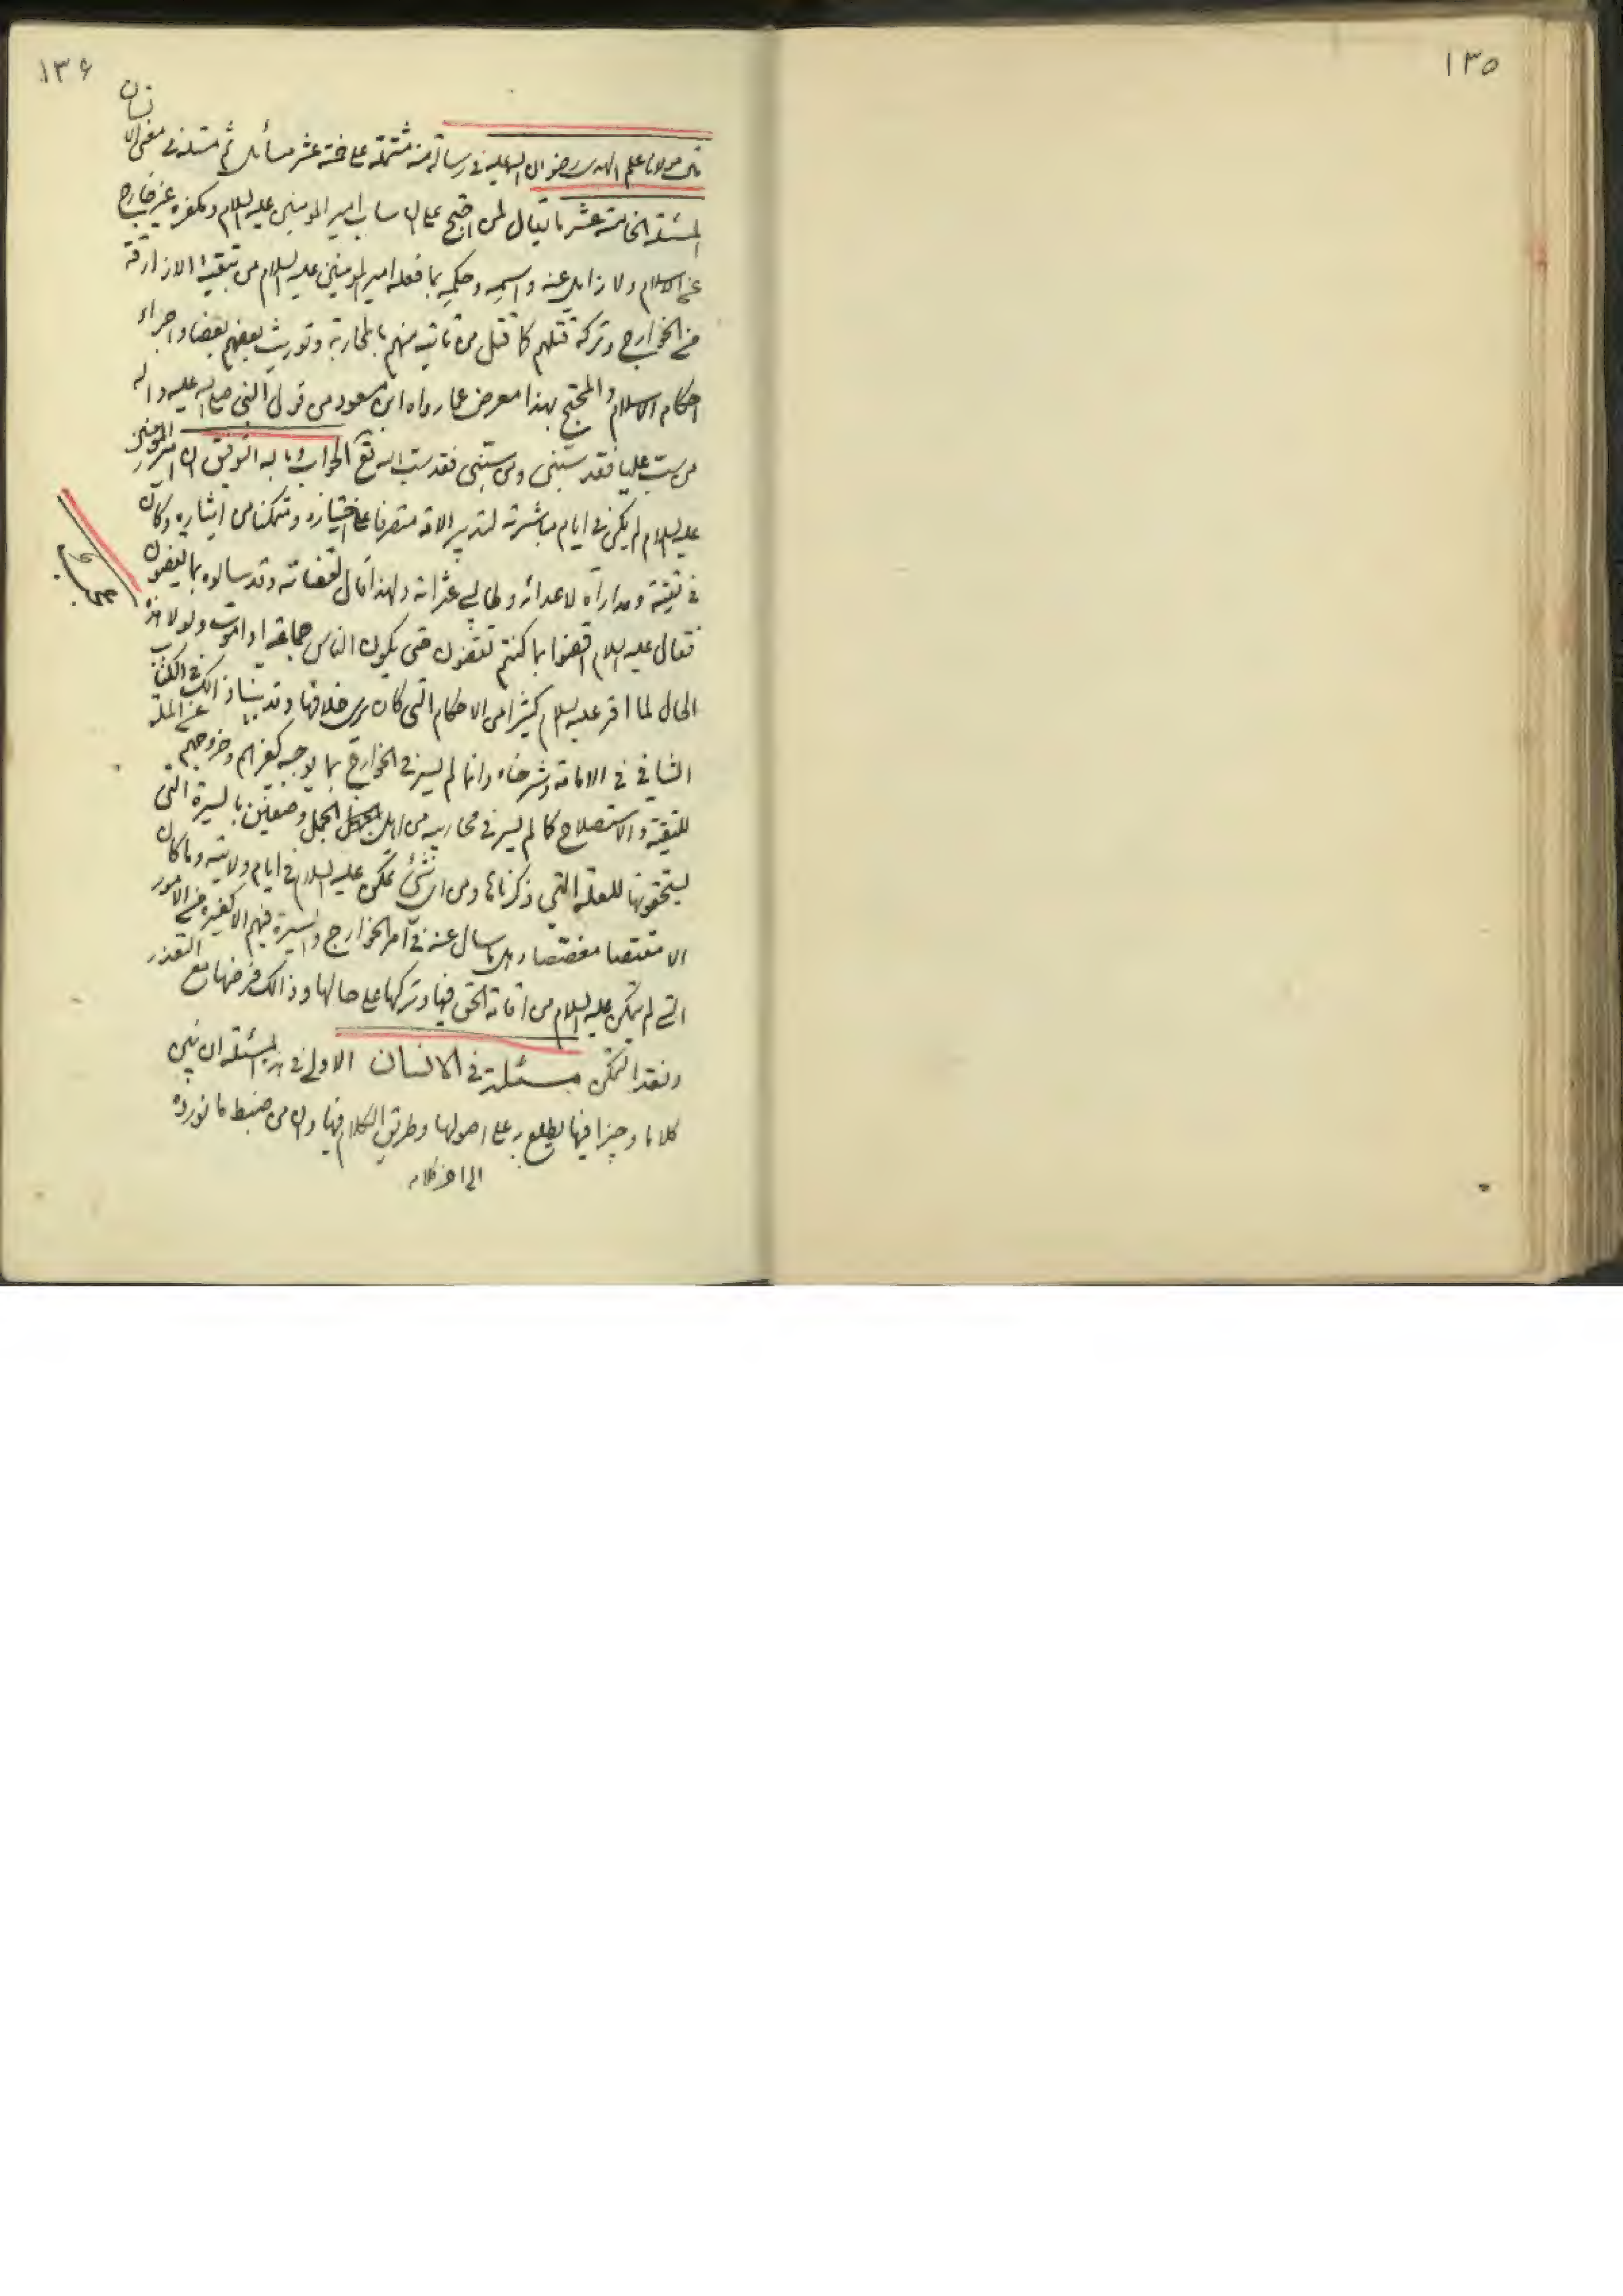 ١٣٥
١٣۶
قال مولانا علم الهدى رضوان الله عليه في رسالة منه مشتملة على خمسة عشر مسائل ثم مسئلة في معنى الانسان
المسئلة الخامسة عشر ما يقال لمن احتج على ان ساب امير المومنين عليه السلام ومكفره غير خارج
عن الاسلام ولا زايل عنه واسمه وحكمه بما فعله امير المومنين عليه السلام من تبقية الازارقة
من الخوارج وتركه قتلهم كما قتل من منهم بالمحاربة وتوريث بعضهم بعضا واجراء
احكام الاسلام والمحتج بهذا معرض عما رواه ابن مسعود من قول النبي صلى الله عليه واله
من سب عليا فقد سبني ومن سبني فقد سب الله تع الجواب وبالله التوفيق ان امير المومنين
عليه السلام لم يكن في ايام مباشرته لتدبير الامة متصرفا على اختياره ومتمكنا من ايثاره وكان
في تقية ومداراة لاعدائه وطالبي عثراته ولهذا قال لقضاته وقد سالوه بما يقضون
فقال عليه السلام اقضوا بما كنتم تقضون حتى يكون الناس جماعة او اموت ولولا هذه
الحال لما اقر عليه السلام كثيرا من الاحكام التي كان يرى خلافها وقد بينا ذالك في الكتاب
الشافي في الامامة وشرحناه وانما لم يسر في الخوارج بما يوجبه كفرهم وخروجهم عن الملة
للتقية والاستصلاح كما لم يسر في محاربيه من اهل الجمل وصفين بالسيرة التي
يستحقونها للعلة التي ذكرناها ومن اي شئ تمكن عليه السلام في ايام ولايته وما كان
الا مغتصا وهل ما سال عنه في امر الخوارج والسيرة فيهم الا كغيره من الامور
التي لم يتمكن عليه السلام من اقامة الحق فيها وتركها على حالها وذالك فرضها مع التعذر
وفقد التمكن مسئلة في الانسان الاولى في هذه المسئلة ان نبين
كلاما وجيزا فيها يطلع به على اصولها وطريق الكلام فيها وان من ضبط ما نورده
الى اخر كلامه